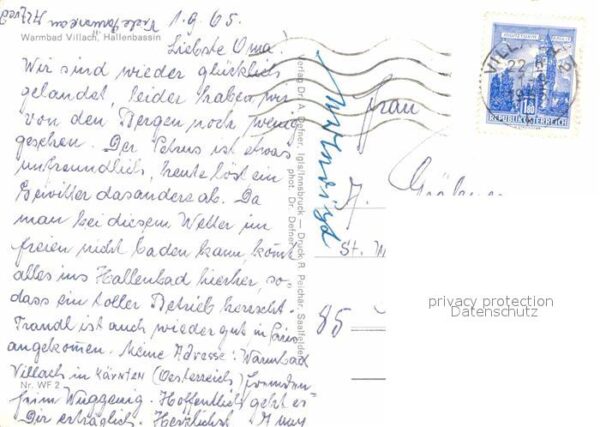 1.9.65.
Warmbad Villach, Hallenbassin
Liebste Oma!
Wir sind wieder glücklich
gelandet, leider haben wir
von den Bergen noch wenig
gesehen. Der Petrus ist etwas
unfreundlich, heute löst ein
Gewitter das andere ab. Da
man bei diesem Wetter im
freien nicht baden kann, kommt
alles ins Hallenbad hierher, so-
dass ein toller Betrieb herrscht.
Trandl ist auch wieder gut in
angekommen. Meine Adresse: Warmbad
Villach in Kärnten (Oesterreich)
Nr. WF 2
Hoffentlich geht es
Dir erträglich. Herzlichst
Verlag Dr. A. Defner, Igls/Innsbruck — Druck R. Peichär, Saalfelden
phot. Dr. Defner
Frau
A.
St.
85
VILL
22
1.80
REPUBLIK ÖSTERREICH
privacy protection
Datenschutz